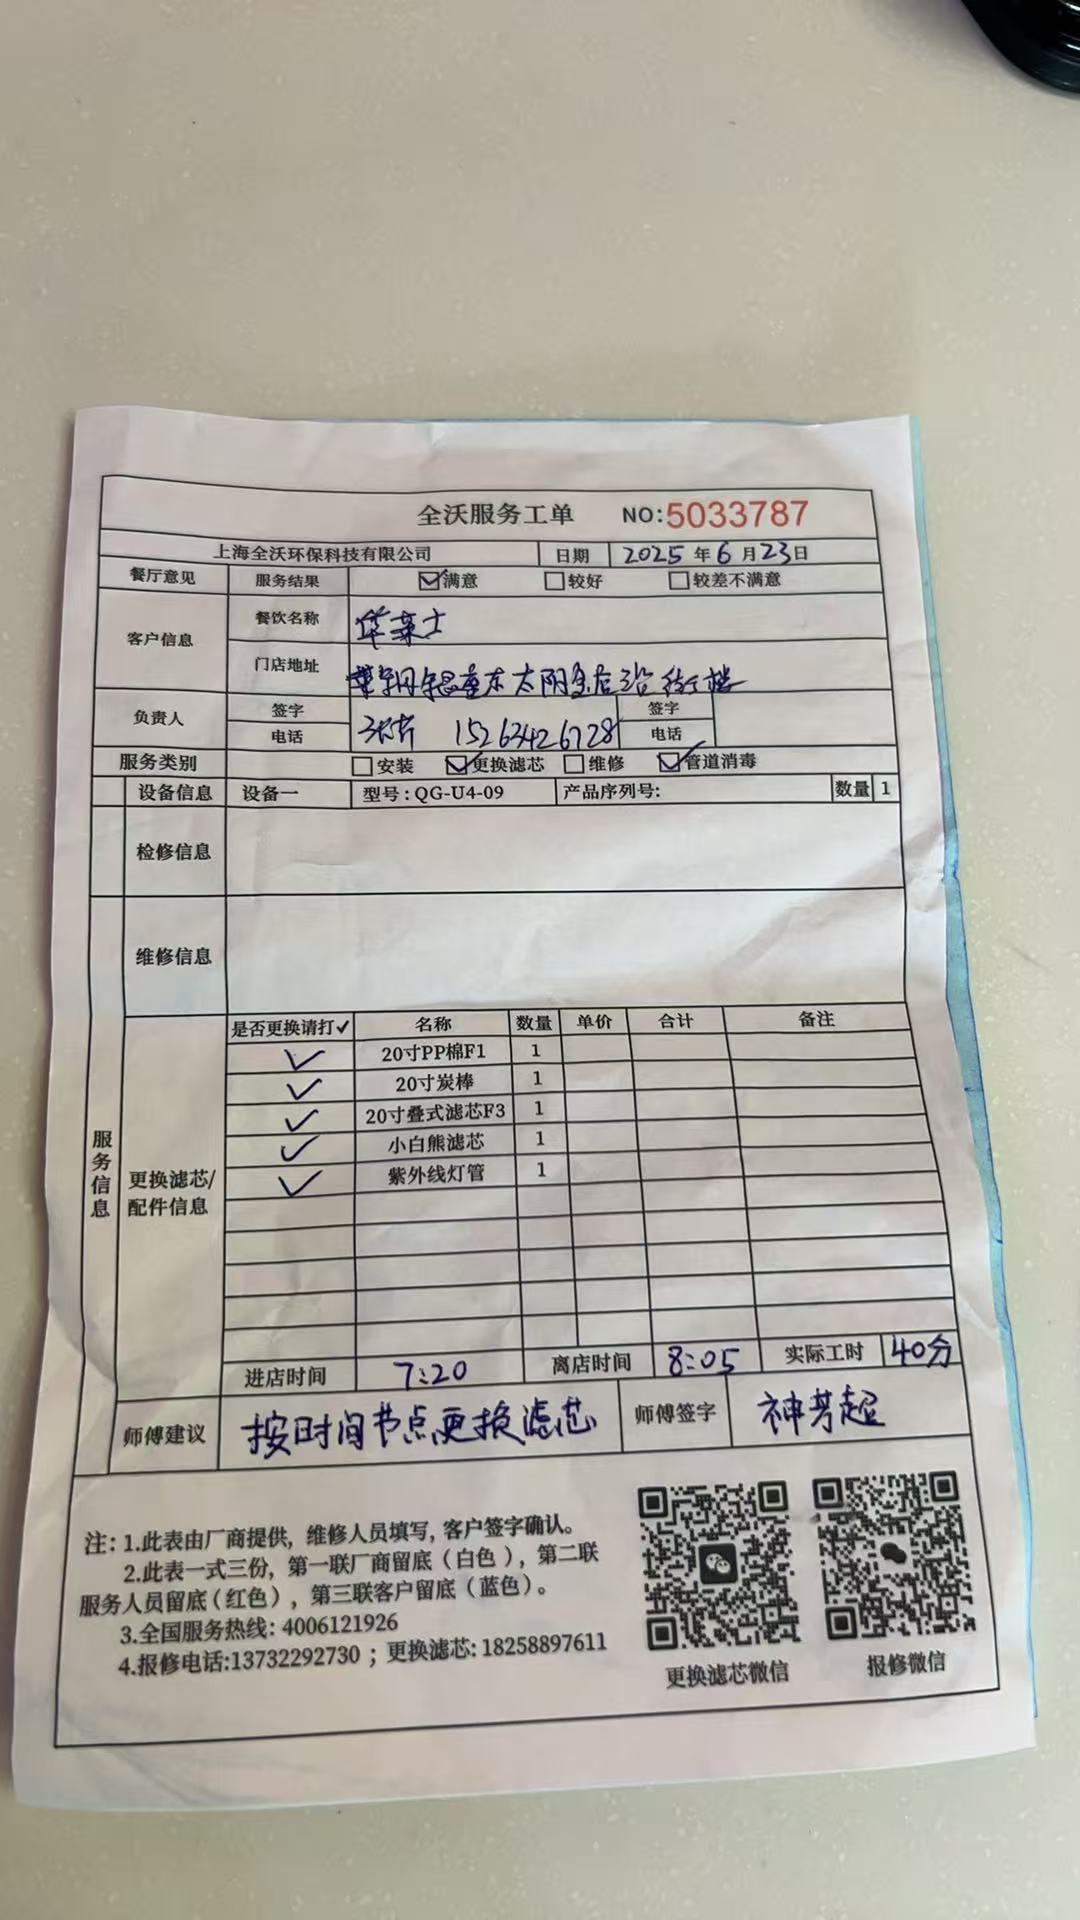 全沃服务工单 NO:5033787
上海全沃环保科技有限公司 日期 2025年6月23日
餐厅意见 服务结果 ☑满意 □较好 □较差不满意
客户信息 餐饮名称 华莱士
门店地址 东太阳 后 沿街楼
负责人 签字 签字
电话 15263426728 电话
服务类别 □安装 ☑更换滤芯 □维修 ☑管道消毒
设备信息 设备一 型号:QG-U4-09 产品序列号: 数量 1
检修信息
维修信息
服务信息
更换滤芯/配件信息
是否更换请打✓ 名称 数量 单价 合计 备注
✓ 20寸PP棉F1 1
✓ 20寸炭棒 1
✓ 20寸叠式滤芯F3 1
✓ 小白熊滤芯 1
✓ 紫外线灯管 1
进店时间 7:20 离店时间 8:05 实际工时 40分
师傅建议 按时间节点更换滤芯 师傅签字
注:1.此表由厂商提供,维修人员填写,客户签字确认。
2.此表一式三份,第一联厂商留底(白色),第二联
服务人员留底(红色),第三联客户留底(蓝色)。
3.全国服务热线:4006121926
4.报修电话:13732292730;更换滤芯:18258897611
更换滤芯微信 报修微信